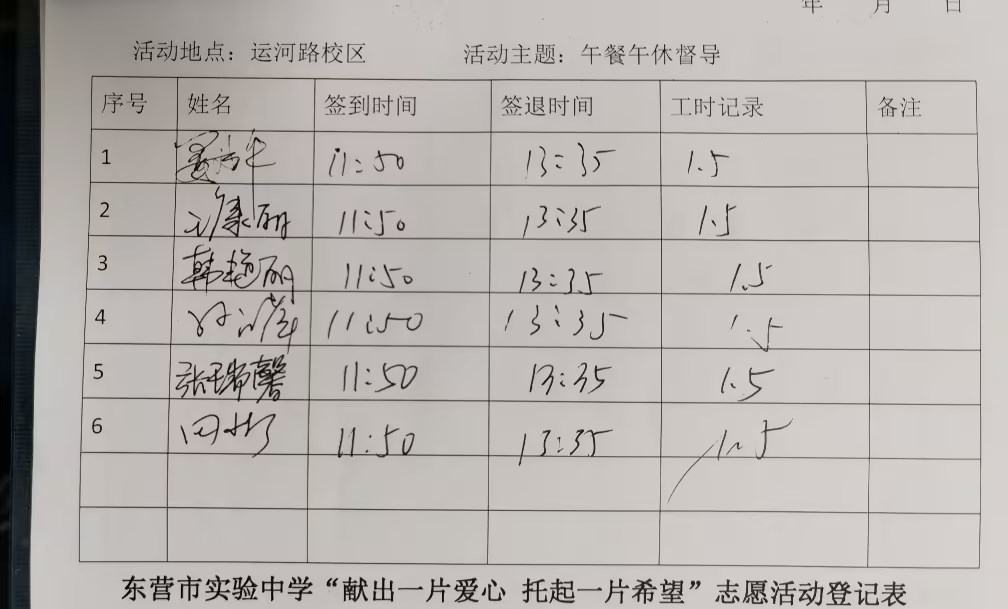 年 月 日
活动地点：运河路校区 活动主题：午餐午休督导
序号 姓名 签到时间 签退时间 工时记录 备注
1 11:50 13:35 1.5
2 王康丽 11:50 13:35 1.5
3 韩艳丽 11:50 13:35 1.5
4 11:50 13:35 1.5
5 张瑞馨 11:50 13:35 1.5
6 田彬 11:50 13:35 1.5
东营市实验中学“献出一片爱心 托起一片希望”志愿活动登记表